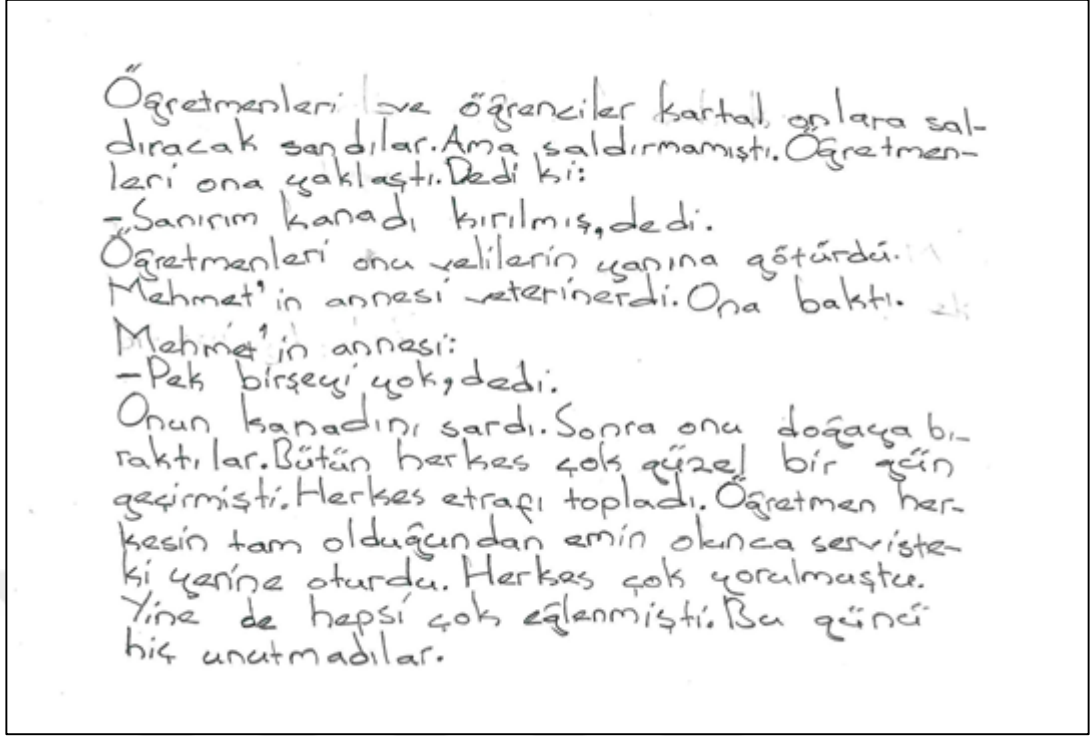 Öğretmenleri ve öğrenciler kartal onlara sal-
dıracak sandılar. Ama saldırmamıştı. Öğretmen-
leri ona yaklaştı. Dedi ki:
-Sanırım kanadı kırılmış, dedi.
Öğretmenleri onu velilerin yanına götürdü.
Mehmet'in annesi veterinerdi. Ona baktı.
Mehmet'in annesi:
-Pek birşeyi yok, dedi.
Onun kanadını sardı. Sonra onu doğaya bı-
raktılar. Bütün herkes çok güzel bir gün
geçirmişti. Herkes etrafı topladı. Öğretmen her-
kesin tam olduğundan emin olunca serviste-
ki yerine oturdu. Herkes çok yorulmuştu.
Yine de hepsi çok eğlenmişti. Bu günü
hiç unutmadılar.